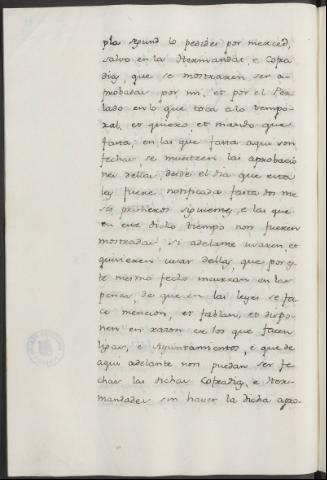 pla segund lo pedides por merced,
salvo en las Hermandat, e Cofra
dias, que se mostraren ser a
probadas por mi, et por el Per
lado en lo que toca alo tempo
ral, et quiero, et mando que
fasta, en las que fasta aqui son
fechas, se muestren las aprobacio
nes dellas, desde el dia que esta
ley fuere notificada fasta dos me
ses primeros siguientes, e las que
en este dicho tiempo non fueren
mostradas, si adelante usaren, et
quisieren usar dellas, que por es
te mesmo fecho incurran en las
penas, de que en las leyes se fa
ce mencion, et fablan, et dispo
nen en razon de los que facen
ligas, e Ayuntamientos, e que de
aqui adelante non puedan ser fe
chas las dichas Cofradias, e Her
mandades sin haver la dicha apro-